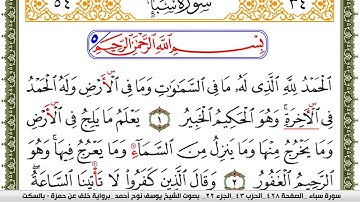 ٥٤ سورة سبإ ٣٤
بِسْمِ اللَّهِ الرَّحْمَٰنِ الرَّحِيمِ ٥
الْحَمْدُ لِلَّهِ الَّذِي لَهُ مَا فِي السَّمَٰوَٰتِ وَمَا فِي الْأَرْضِ وَلَهُ الْحَمْدُ
فِي الْآخِرَةِ ۚ وَهُوَ الْحَكِيمُ الْخَبِيرُ ١ يَعْلَمُ مَا يَلِجُ فِي الْأَرْضِ
وَمَا يَخْرُجُ مِنْهَا وَمَا يَنزِلُ مِنَ السَّمَاءِ وَمَا يَعْرُجُ فِيهَا ۚ وَهُوَ
الرَّحِيمُ الْغَفُورُ ٢ وَقَالَ الَّذِينَ كَفَرُوا لَا تَأْتِينَا السَّاعَةُ ۖ
سورة سباء . الصفحة ٤٢٨ .الحزب ٤٣ .الجزء ٢٢ . بصوت الشيخ يوسف نوح أحمد . برواية خلف عن حمزة - بالسكت